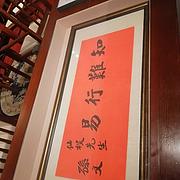 知難行易
先生
孫文